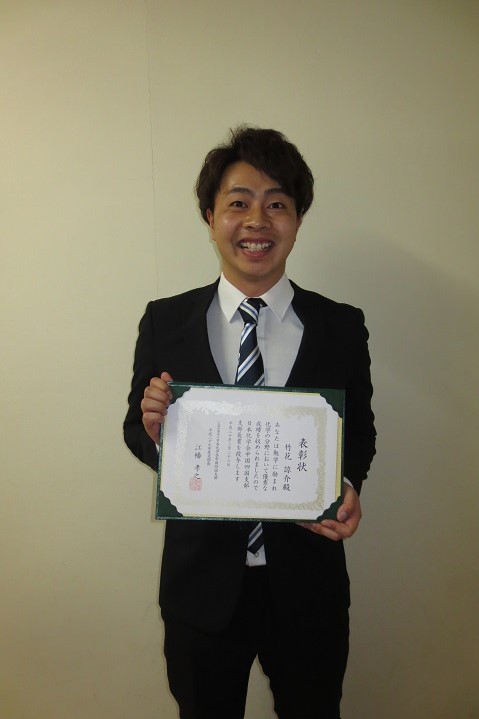 表彰状
竹花 諒介殿
あなたは勉学に励まれ
化学の分野において優秀な
成績を収められましたので
日本化学会中国四国支部
支部長賞を授与します
江幡 孝之